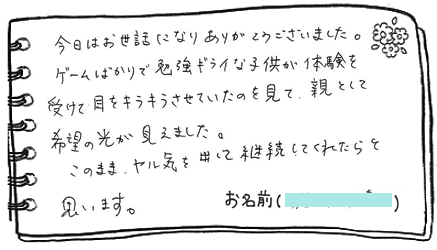 今日はお世話になりありがとうございました。
ゲームばかりで勉強ギライな子供が体験を
受けて目をキラキラさせていたのを見て、親として
希望の光が見えました。
このまま、ヤル気を出して継続してくれたらと
思います。
お名前( )